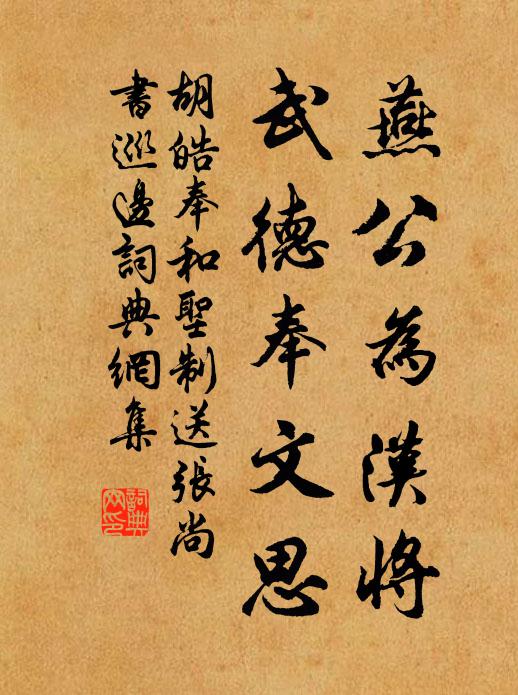 燕公為漢將
武德奉文思
胡皓奉和聖制送張尚
書巡邊詞典網集
詞典
网印